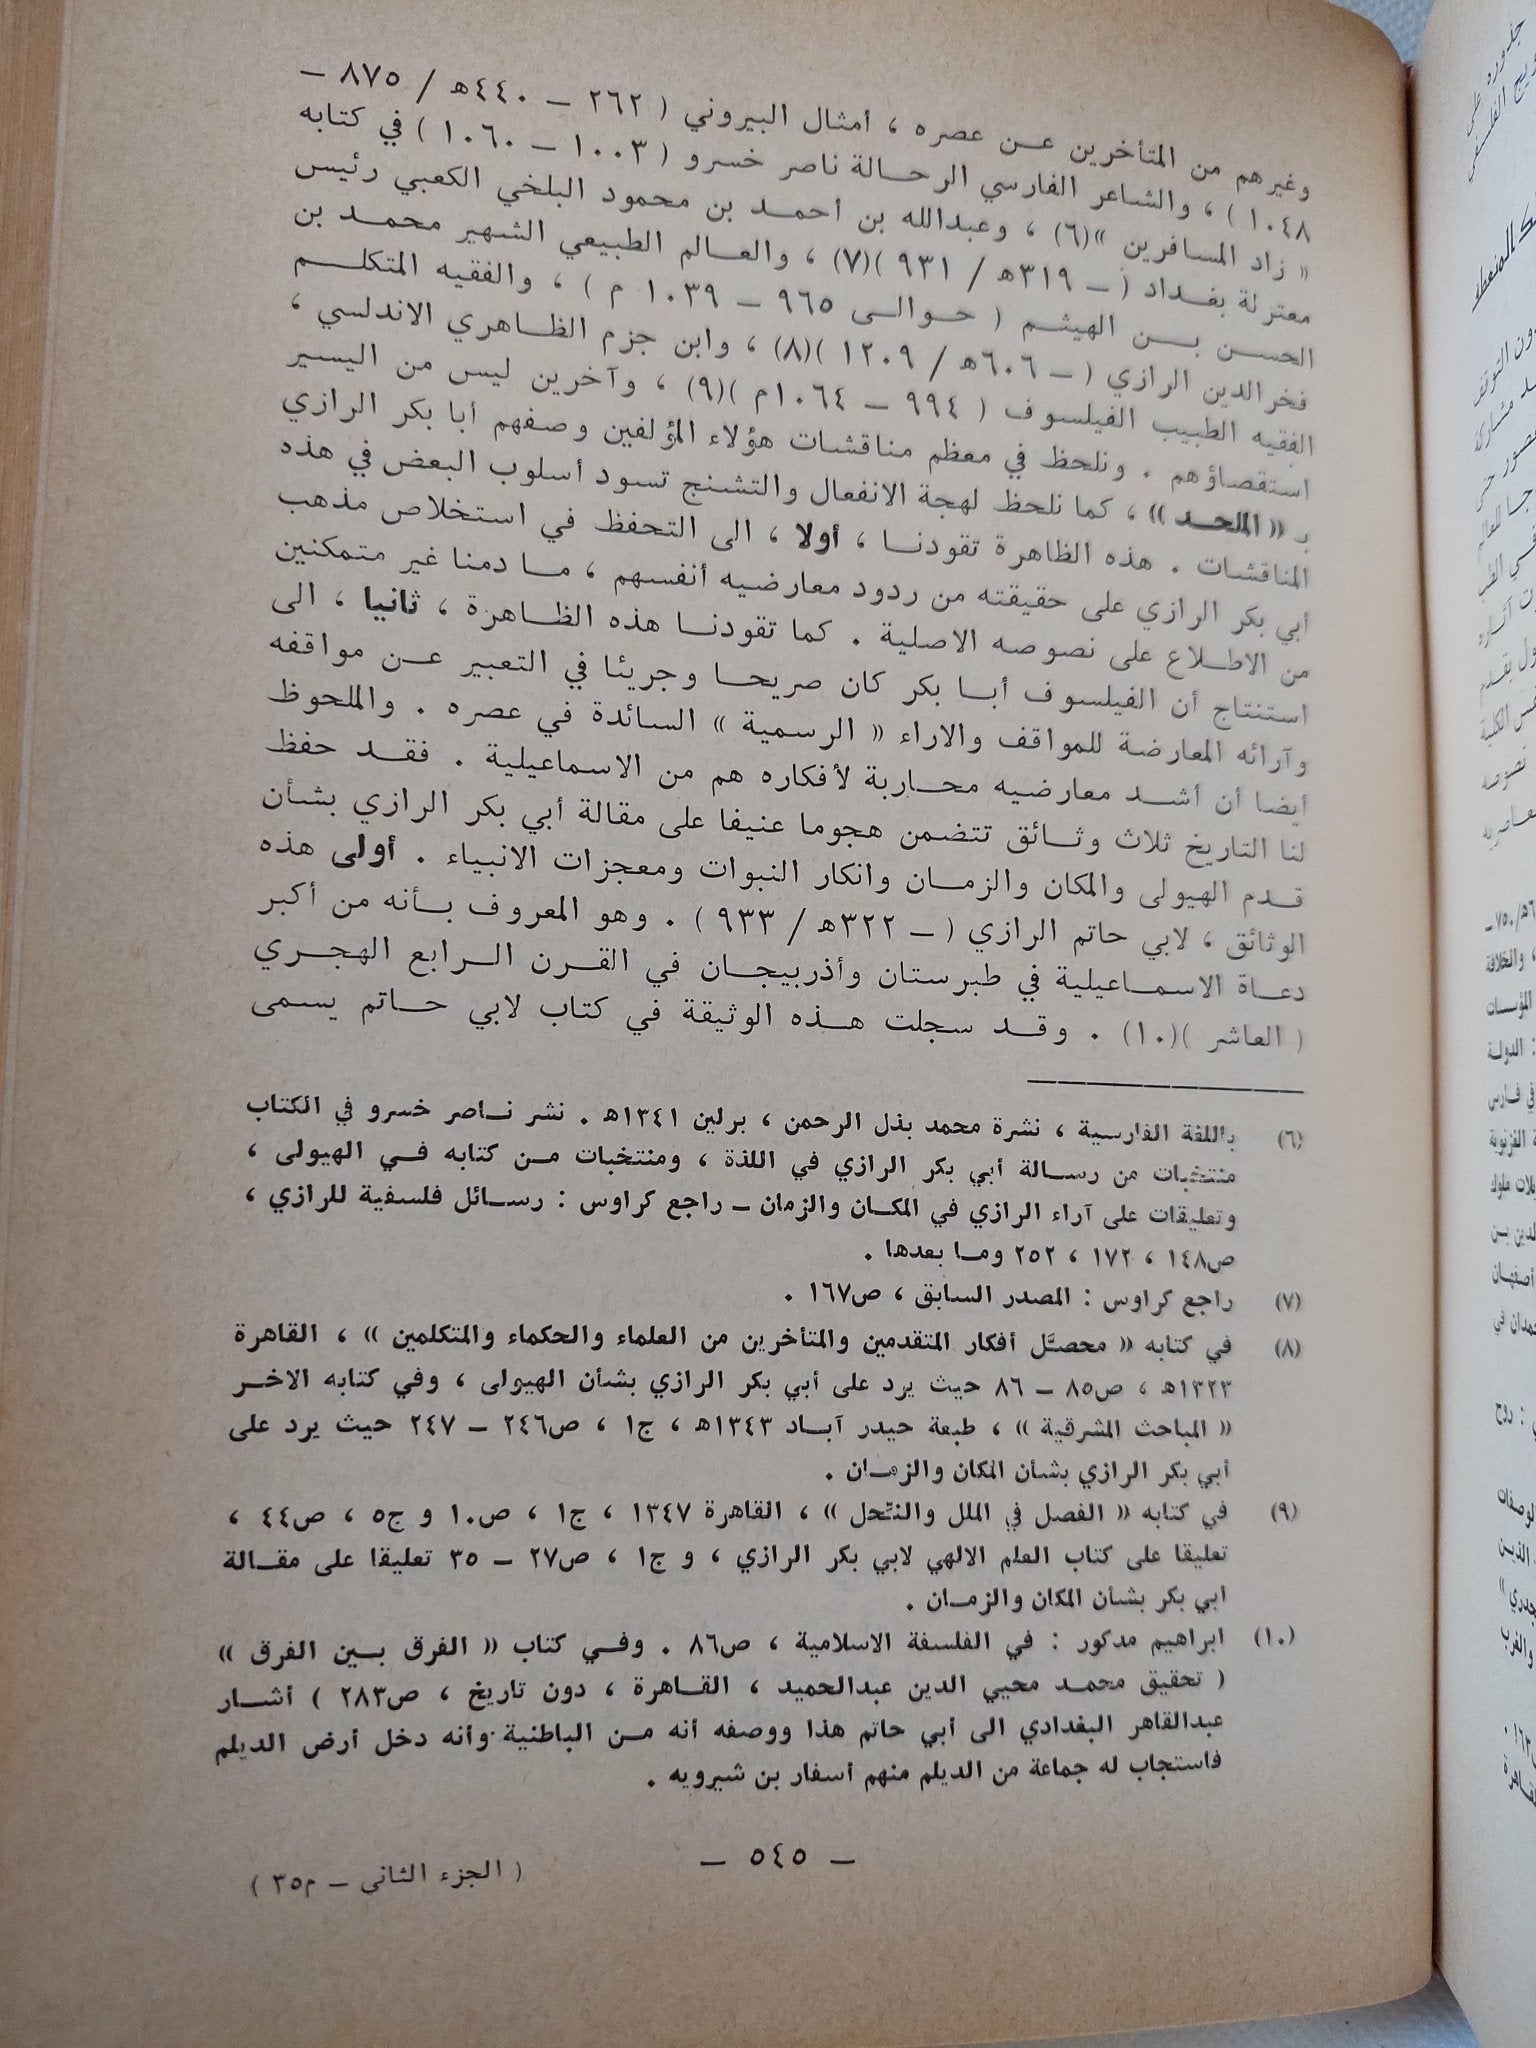 وغيرهم من المتأخرين عن عصره ، أمثال البيروني ( ٢٦٢ – ٤٤٠هـ / ٨٧٥ –
١٠٤٨ ) ، والشاعر الفارسي الرحالة ناصر خسرو ( ١٠٠٣ – ١٠٦٠ ) في كتابه
« زاد المسافرين »(٦) ، وعبدالله بن أحمد بن محمود البلخي الكعبي رئيس
معتزلة بغداد ( – ٣١٩هـ / ٩٣١ )(٧) ، والعالم الطبيعي الشهير محمد بن
الحسن بن الهيثم ( حوالى ٩٦٥ – ١٠٣٩ م ) ، والفقيه المتكلم
فخرالدين الرازي ( – ٦٠٦هـ / ١٢٠٩ )(٨) ، وابن جزم الظاهري الاندلسي ،
الفقيه الطبيب الفيلسوف ( ٩٩٤ – ١٠٦٤م )(٩) ، وآخرين ليس من اليسير
استقصاؤهم . ونلحظ في معظم مناقشات هؤلاء المؤلفين وصفهم أبا بكر الرازي
بـ « الملحد » ، كما نلحظ لهجة الانفعال والتشنج تسود أسلوب البعض في هذه
المناقشات . هذه الظاهرة تقودنا ، أولا ، الى التحفظ في استخلاص مذهب
أبي بكر الرازي على حقيقته من ردود معارضيه أنفسهم ، ما دمنا غير متمكنين
من الاطلاع على نصوصه الاصلية . كما تقودنا هذه الظاهرة ، ثانيا ، الى
استنتاج أن الفيلسوف أبا بكر كان صريحا وجريئا في التعبير عن مواقفه
وآرائه المعارضة للمواقف والاراء « الرسمية » السائدة في عصره . والملحوظ
أيضا أن أشد معارضيه محاربة لأفكاره هم من الاسماعيلية . فقد حفظ
لنا التاريخ ثلاث وثائق تتضمن هجوما عنيفا على مقالة أبي بكر الرازي بشأن
قدم الهيولى والمكان والزمان وانكار النبوات ومعجزات الانبياء . أولى هذه
الوثائق ، لابي حاتم الرازي ( – ٣٢٢هـ / ٩٣٣ ) . وهو المعروف بأنه من أكبر
دعاة الاسماعيلية في طبرستان وأذربيجان في القرن الرابع الهجري
( العاشر )(١٠) . وقد سجلت هذه الوثيقة في كتاب لابي حاتم يسمى
(٦) باللغة الفارسية ، نشرة محمد بذل الرحمن ، برلين ١٣٤١هـ . نشر ناصر خسرو في الكتاب
منتخبات من رسالة أبي بكر الرازي في اللذة ، ومنتخبات من كتابه في الهيولى ،
وتعليقات على آراء الرازي في المكان والزمان – راجع كراوس : رسائل فلسفية للرازي ،
ص١٤٨ ، ١٧٢ ، ٢٥٢ وما بعدها .
(٧) راجع كراوس : المصدر السابق ، ص١٦٧ .
(٨) في كتابه « محصَّل أفكار المتقدمين والمتأخرين من العلماء والحكماء والمتكلمين » ، القاهرة
١٣٢٣هـ ، ص٨٥ – ٨٦ حيث يرد على أبي بكر الرازي بشأن الهيولى ، وفي كتابه الاخر
« المباحث المشرقية » ، طبعة حيدر آباد ١٣٤٣هـ ، ج١ ، ص٢٤٦ – ٢٤٧ حيث يرد على
أبي بكر الرازي بشأن المكان والزمان .
(٩) في كتابه « الفصل في الملل والنّحل » ، القاهرة ١٣٤٧ ، ج١ ، ص١٠ و ج٥ ، ص٤٤ ،
تعليقا على كتاب العلم الالهي لابي بكر الرازي ، و ج١ ، ص٢٧ – ٣٥ تعليقا على مقالة
ابي بكر بشأن المكان والزمان .
(١٠) ابراهيم مدكور : في الفلسفة الاسلامية ، ص٨٦ . وفي كتاب « الفرق بين الفرق »
( تحقيق محمد محيي الدين عبدالحميد ، القاهرة ، دون تاريخ ، ص٢٨٣ ) أشار
عبدالقاهر البغدادي الى أبي حاتم هذا ووصفه أنه من الباطنية وأنه دخل أرض الديلم
فاستجاب له جماعة من الديلم منهم أسفار بن شيرويه .
– ٥٤٥ –
( الجزء الثاني – م٣٥ )